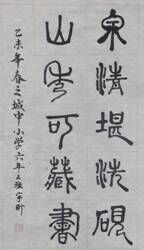 泉清堪洗硯
山秀可藏書
乙未年春之城中小学六年三班宇昕